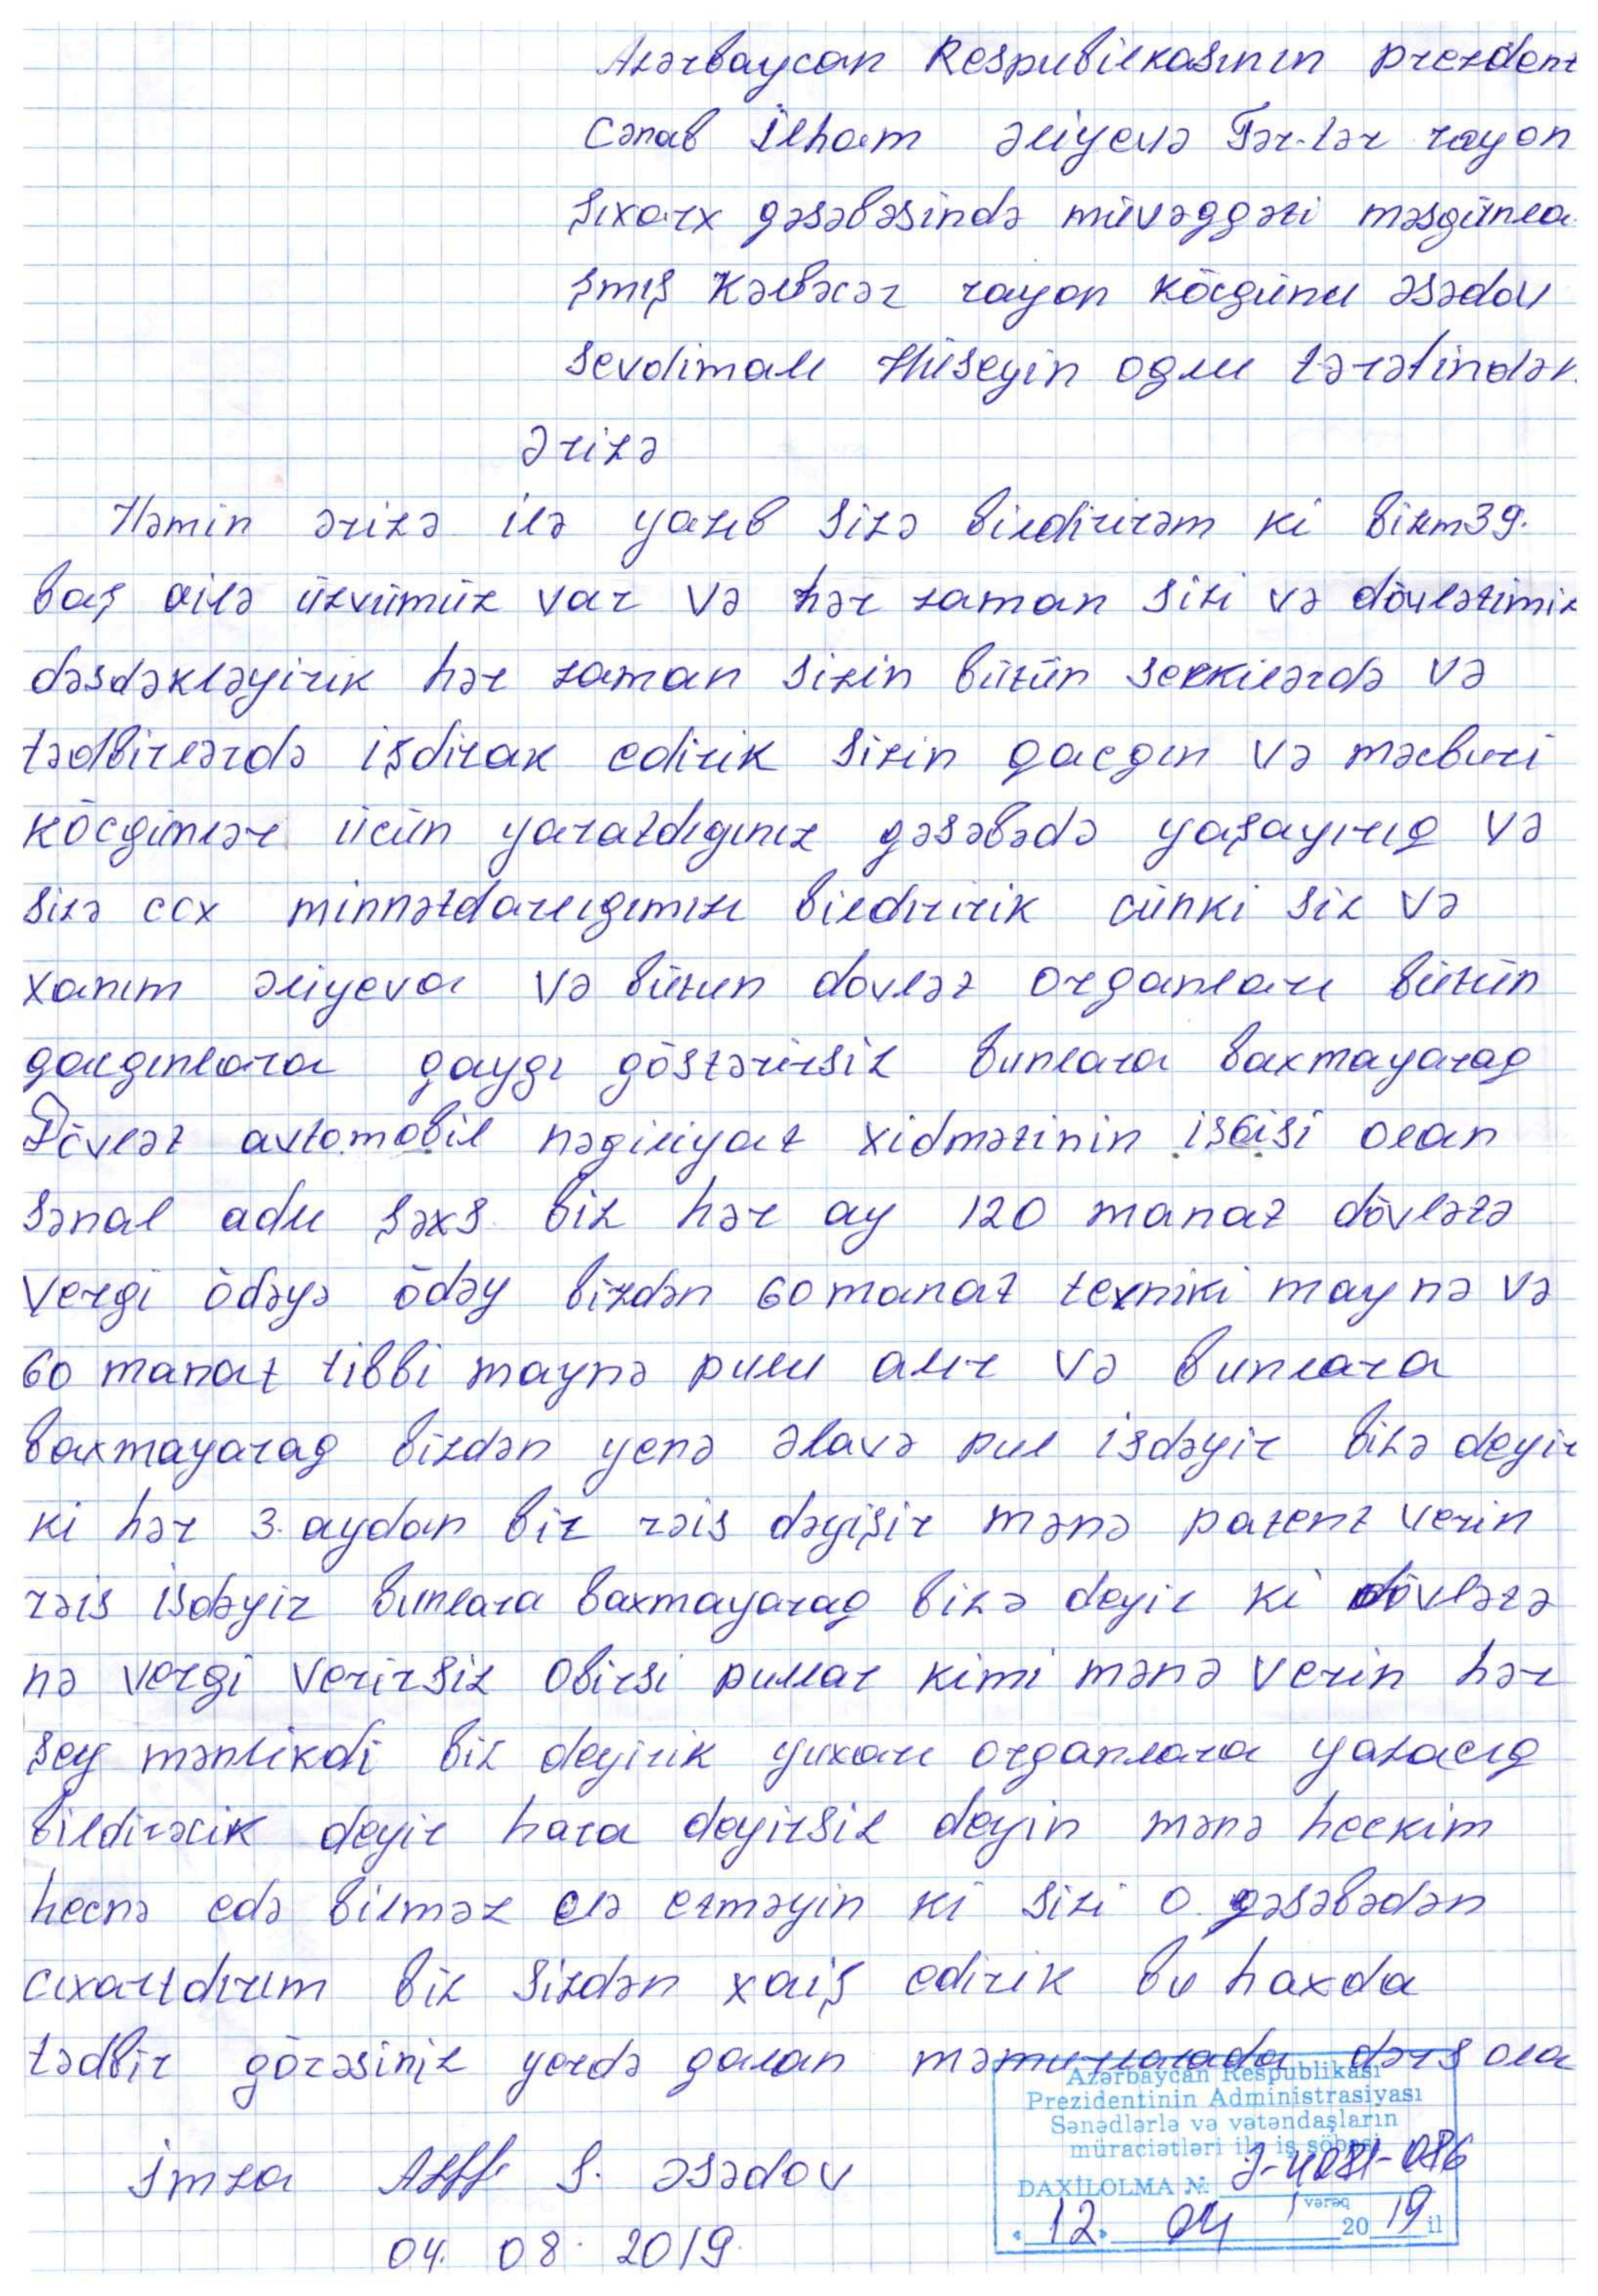 Azərbaycan Respubilkasının prezdent
Cənab İlham Əliyevə Tər-tər rayon
Şıxarx gəsəbəsində müvəggəti məsgünla
şmış Kəlbəcər rayon köcgünu Əsədov
Sevdimalı Hüseyin oglu tərəfindən
Ərizə
Həmin ərizə ilə yazıb sizə bildirirəm ki bizm 39.
baş ailə üzvümüz var və hər zaman sizi və dövlətimiz
dəsdəkləyirik hər zaman sizin bütün seckilərdə və
tədbirlərdə işdirak edirik sizin qacgın və məcburi
köcgünlər ücün yaratdıgınız gəsəbədə yaşayırıg və
sizə ccx minnətdarlıgımızı bildiririk cünki siz və
xanım Əliyeva və bütun dovlət organları bütün
gacgınlara gaygı göstərirsiz bunlara baxmayarag
Dövlət avtomobil nəgiliyat xidmətinin iscisi olan
Sənal adlı şəxs biz hər ay 120 manat dövlətə
vergi ödəyə ödəy bizdən 60 manat texniki maynə və
60 manat tibbi maynə pulu alır və bunlara
baxmayarag bizdən yenə əlavə pul isdəyir bizə deyir
ki hər 3. aydan bir rəis dəyişir mənə patent verin
rəis isdəyir bunlara baxmayarag bizə deyir ki dövlətə
nə vergi verirsiz obirsi pullar kimi mənə verin hər
şey mənlikdi biz deyirik yuxarı organlara yazacıg
bildirəcik deyir hara deyirsiz deyin mənə heckim
hecnə edə bilməz elə etməyin ki sizi o gəsəbədən
cıxartdırım biz sizdən xaiş edirik bu haxda
tədbir görəsiniz yerdə galan məmurlarada dərs ola
Azərbaycan Respublikası
Prezidentinin Administrasiyası
Sənədlərlə və vətəndaşların
müraciətləri ilə iş şöbəsi
DAXİLOLMA №
vərəq
« 12 » 04 2019 il
İmza S. Əsədov
04. 08. 2019.